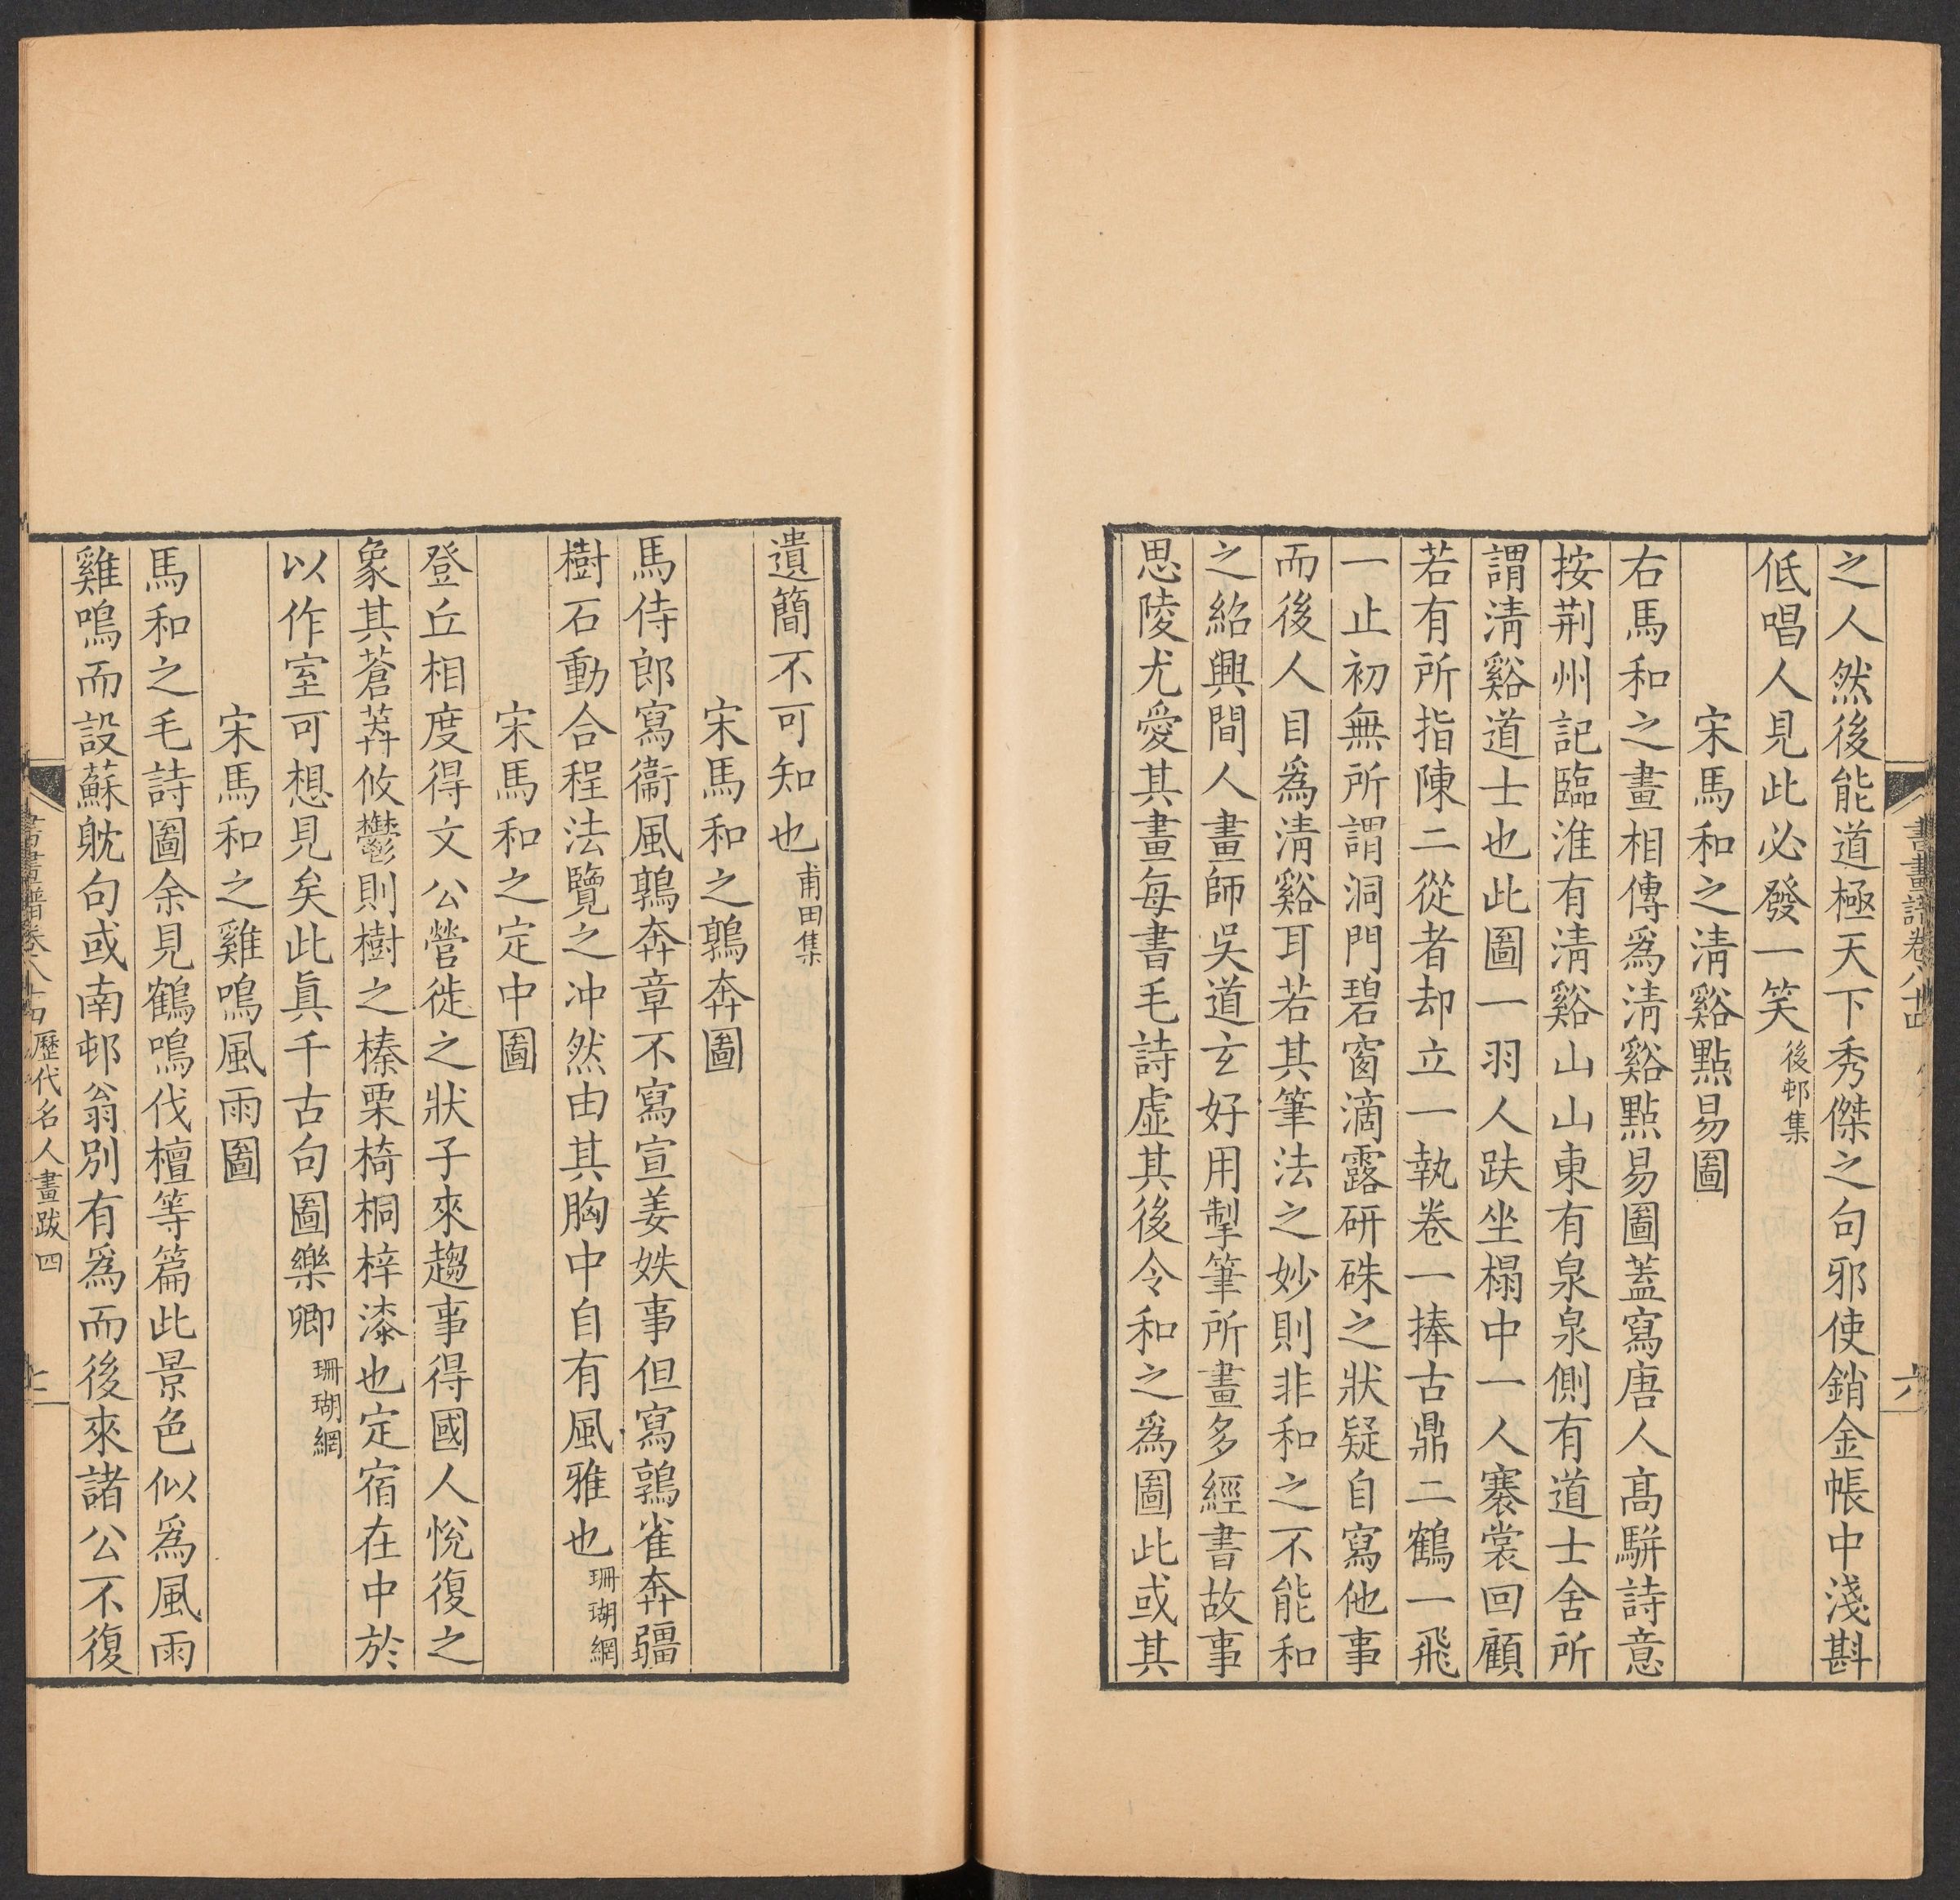 書畫譜卷八十四
六
之人然後能道極天下秀傑之句邪使銷金帳中淺斟
低唱人見此必發一笑後邨集
宋馬和之淸谿點易圖
右馬和之畫相傳爲淸谿點易圖蓋寫唐人高駢詩意
按荆州記臨淮有淸谿山山東有泉泉側有道士舍所
謂淸谿道士也此圖一羽人趺坐榻中一人褰裳回顧
若有所指陳二從者却立一執卷一捧古鼎二鶴一飛
一止初無所謂洞門碧窗滴露研硃之狀疑自寫他事
而後人目爲淸谿耳若其筆法之妙則非和之不能和
之紹興間人畫師吳道玄好用掣筆所畫多經書故事
思陵尤愛其畫每書毛詩虛其後令和之爲圖此或其
遺簡不可知也甫田集
宋馬和之鶉奔圖
馬侍郎寫衞風鶉奔章不寫宣姜姝事但寫鶉雀奔疆
樹石動合程法覽之冲然由其胸中自有風雅也珊瑚網
宋馬和之定中圖
登丘相度得文公營徙之狀子來趨事得國人悅復之
象其蒼莽攸鬱則樹之榛栗椅桐梓漆也定宿在中於
以作室可想見矣此眞千古句圖樂卿珊瑚網
宋馬和之雞鳴風雨圖
馬和之毛詩圖余見鶴鳴伐檀等篇此景色似爲風雨
雞鳴而設蘇躭句或南邨翁別有爲而後來諸公不復
書畫譜卷八十四 歷代名人畫跋四